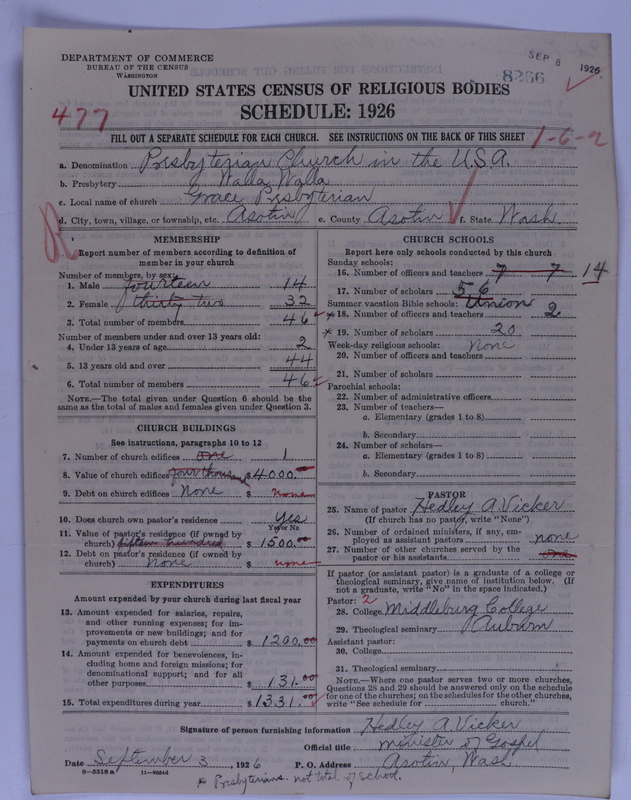 DEPARTMENT OF COMMERCE
BUREAU OF THE CENSUS
WASHINGTON
SEP 8 1926
8266
UNITED STATES CENSUS OF RELIGIOUS BODIES
SCHEDULE: 1926
477
FILL OUT A SEPARATE SCHEDULE FOR EACH CHURCH. SEE INSTRUCTIONS ON THE BACK OF THIS SHEET
1-6-2
a. Denomination Presbyterian Church in the U.S.A.
b. Presbytery Walla Walla
c. Local name of church Grace Presbyterian
d. City, town, village, or township, etc. Asotin e. County Asotin f. State Wash
MEMBERSHIP
Report number of members according to definition of member in your church
Number of members, by sex:
1. Male fourteen 14
2. Female thirty two 32
3. Total number of members 46
Number of members under and over 13 years old:
4. Under 13 years of age 2
5. 13 years old and over 44
6. Total number of members 46
NOTE.—The total given under Question 6 should be the same as the total of males and females given under Question 3.
CHURCH BUILDINGS
See instructions, paragraphs 10 to 12
7. Number of church edifices one 1
8. Value of church edifices four thousand $4000.
9. Debt on church edifices None $ none
10. Does church own pastor's residence Yes
Yes or No
11. Value of pastor's residence (if owned by church) fifteen hundred $1500.00
12. Debt on pastor's residence (if owned by church) None $ none
EXPENDITURES
Amount expended by your church during last fiscal year
13. Amount expended for salaries, repairs, and other running expenses; for improvements or new buildings; and for payments on church debt $1200.00
14. Amount expended for benevolences, including home and foreign missions; for denominational support; and for all other purposes $131.00
15. Total expenditures during year $1331.00
CHURCH SCHOOLS
Report here only schools conducted by this church
Sunday schools:
16. Number of officers and teachers 7 7 14
17. Number of scholars 56
Summer vacation Bible schools: Union
*18. Number of officers and teachers 2
*19. Number of scholars 20
Week-day religious schools: None
20. Number of officers and teachers
21. Number of scholars
Parochial schools:
22. Number of administrative officers
23. Number of teachers—
a. Elementary (grades 1 to 8)
b. Secondary
24. Number of scholars—
a. Elementary (grades 1 to 8)
b. Secondary
PASTOR
25. Name of pastor Hedley A. Vicker
(If church has no pastor, write "None")
26. Number of ordained ministers, if any, employed as assistant pastors none
27. Number of other churches served by the pastor or his assistants
If pastor (or assistant pastor) is a graduate of a college or theological seminary, give name of institution below. (If not a graduate, write "No" in the space indicated.)
Pastor: 2
28. College Middlebury College
29. Theological seminary Auburn
Assistant pastor:
30. College
31. Theological seminary
NOTE.—Where one pastor serves two or more churches, Questions 28 and 29 should be answered only on the schedule for one of the churches; on the schedules for the other churches, write "See schedule for church."
Signature of person furnishing information Hedley A Vicker
Official title minister of Gospel
Date September 3, 1926 P. O. Address Asotin, Wash.
8—5518a
* Presbyterians. not total of school.